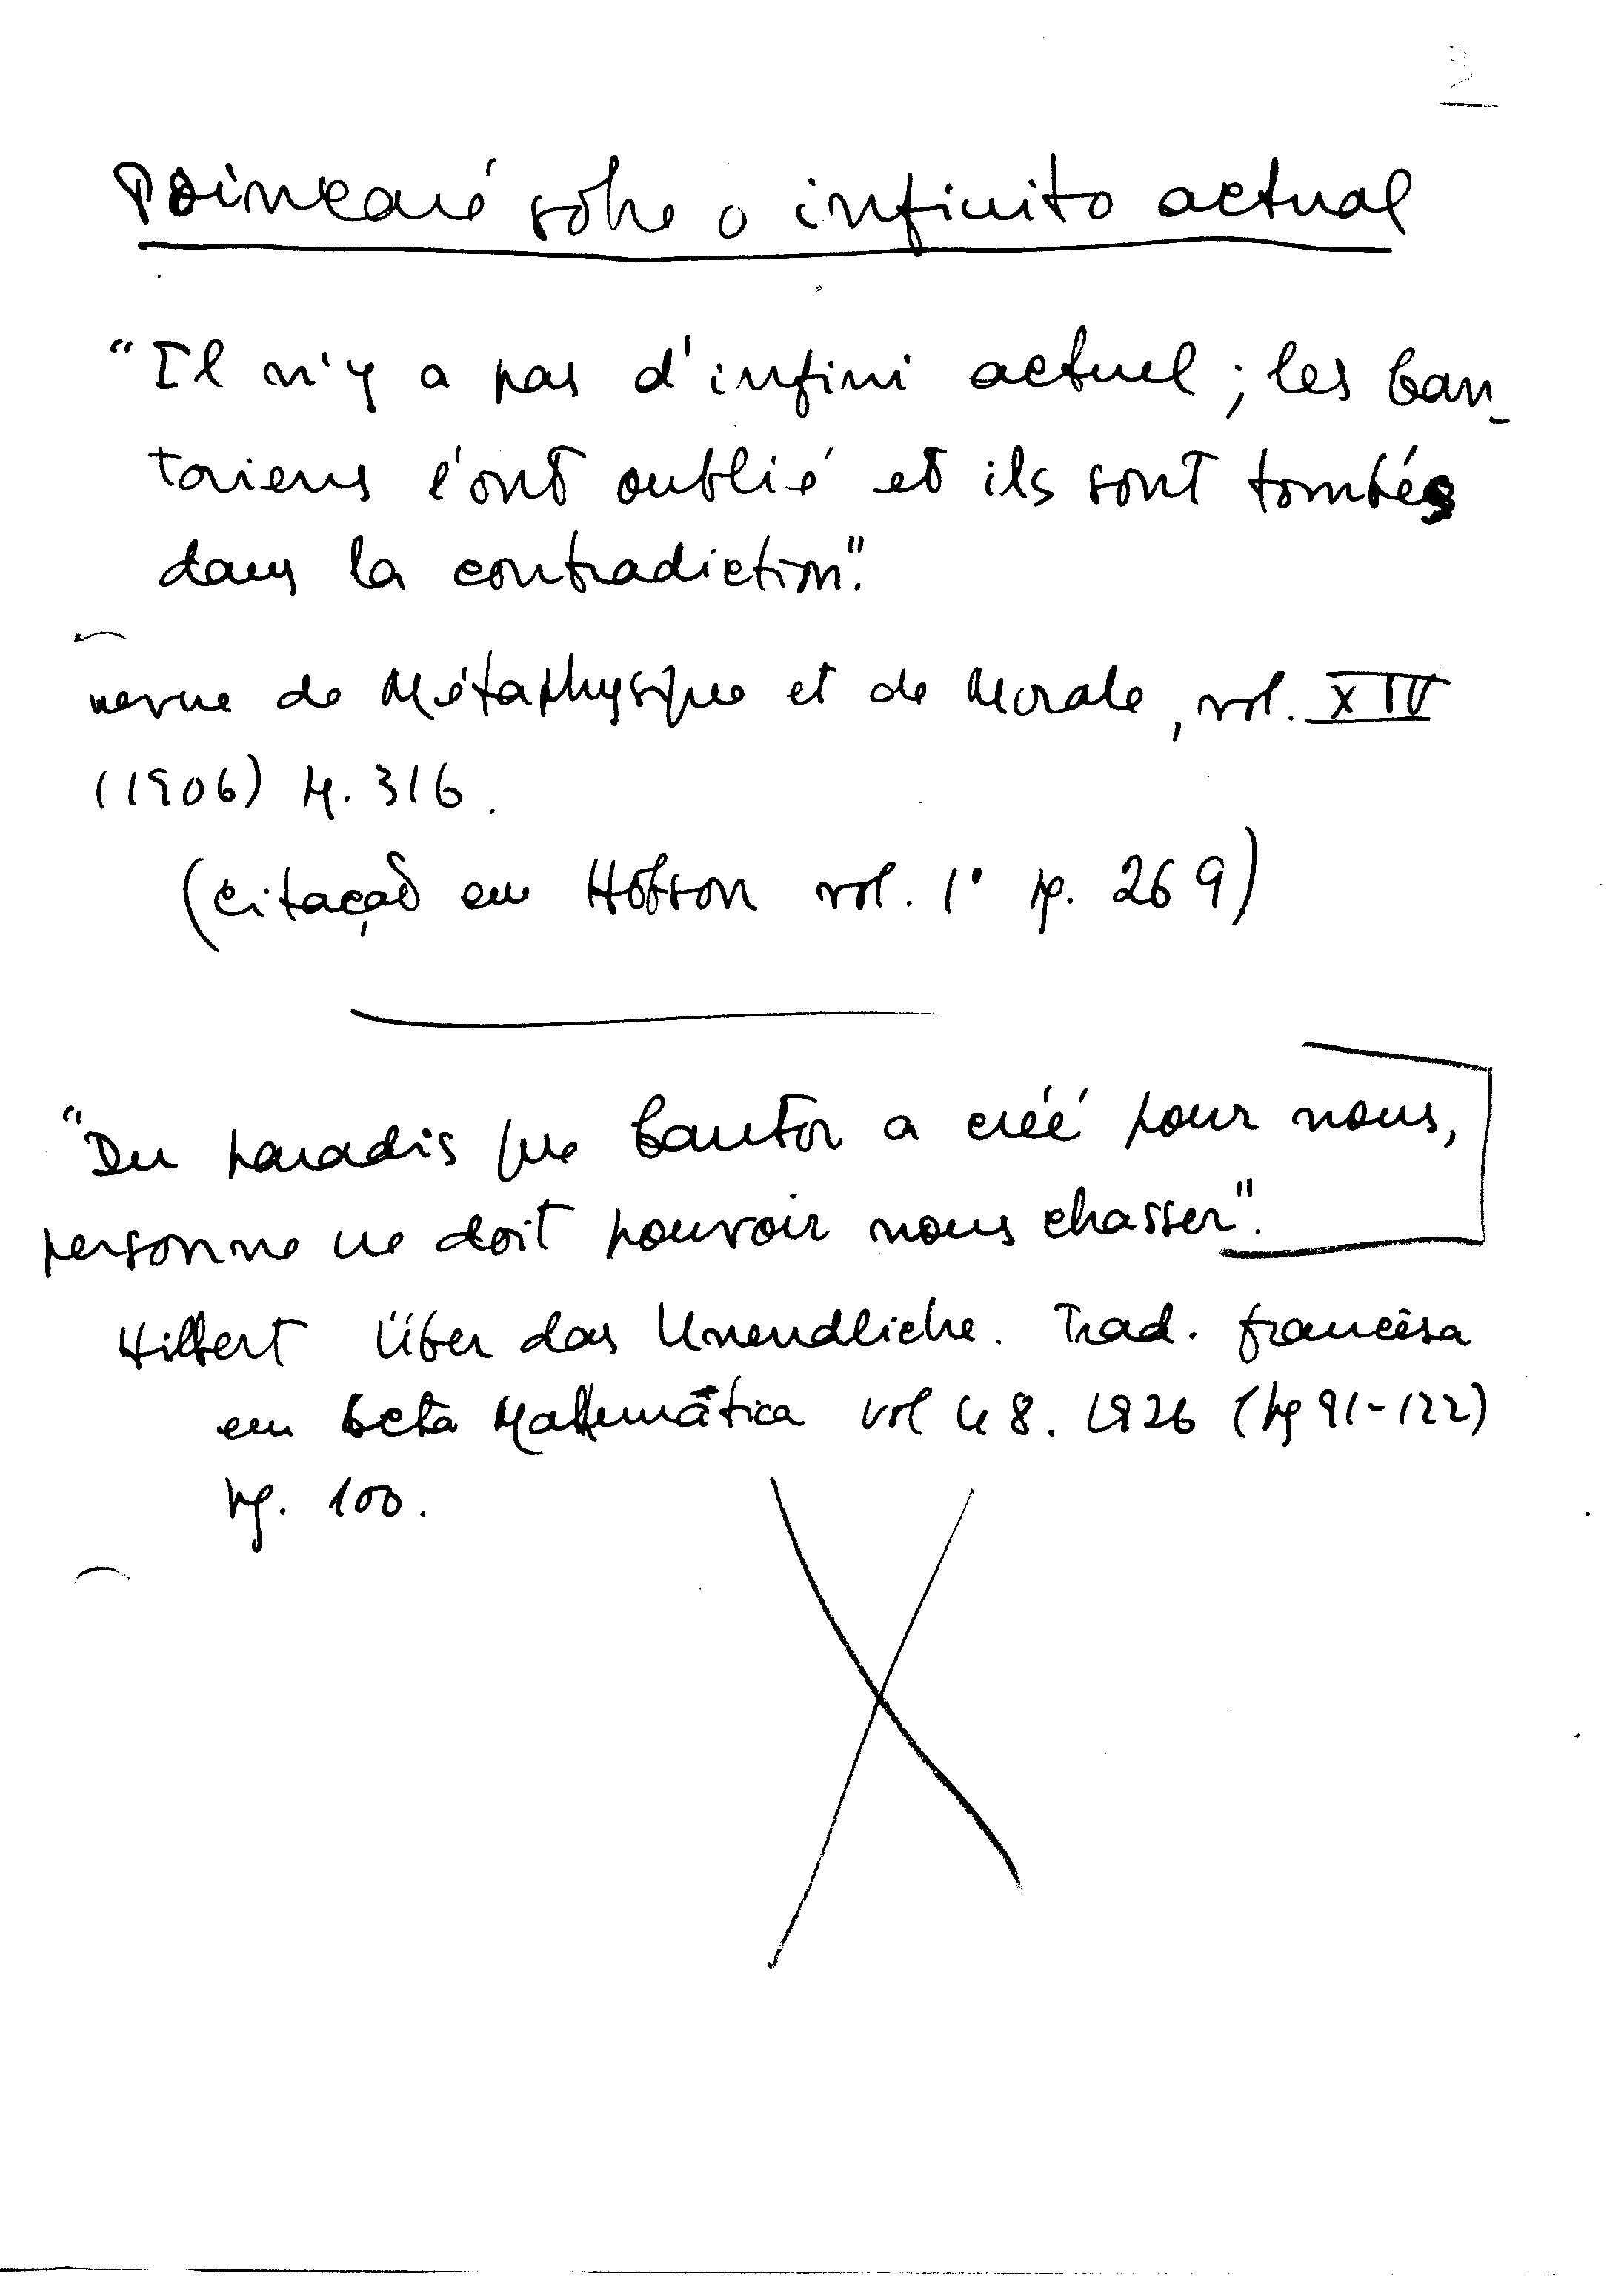 2
Poincaré sôbre o infinito actual
"Il n'y a pas d'infini actuel ; les Can-
toriens l'ont oublié et ils sont tombés
dans la contradiction".
revue de Métaphysique et de Morale, vol. XIV
(1906) p. 316.
(citação em Hobson vol. 1º p. 269)
"Du paradis que Cantor a créé pour nous,
personne ne doit pouvoir nous chasser".
Hilbert Über das Unendliche. Trad. francêsa
em Acta Mathemática vol 48. 1926 (pg 91-122)
pg. 100.